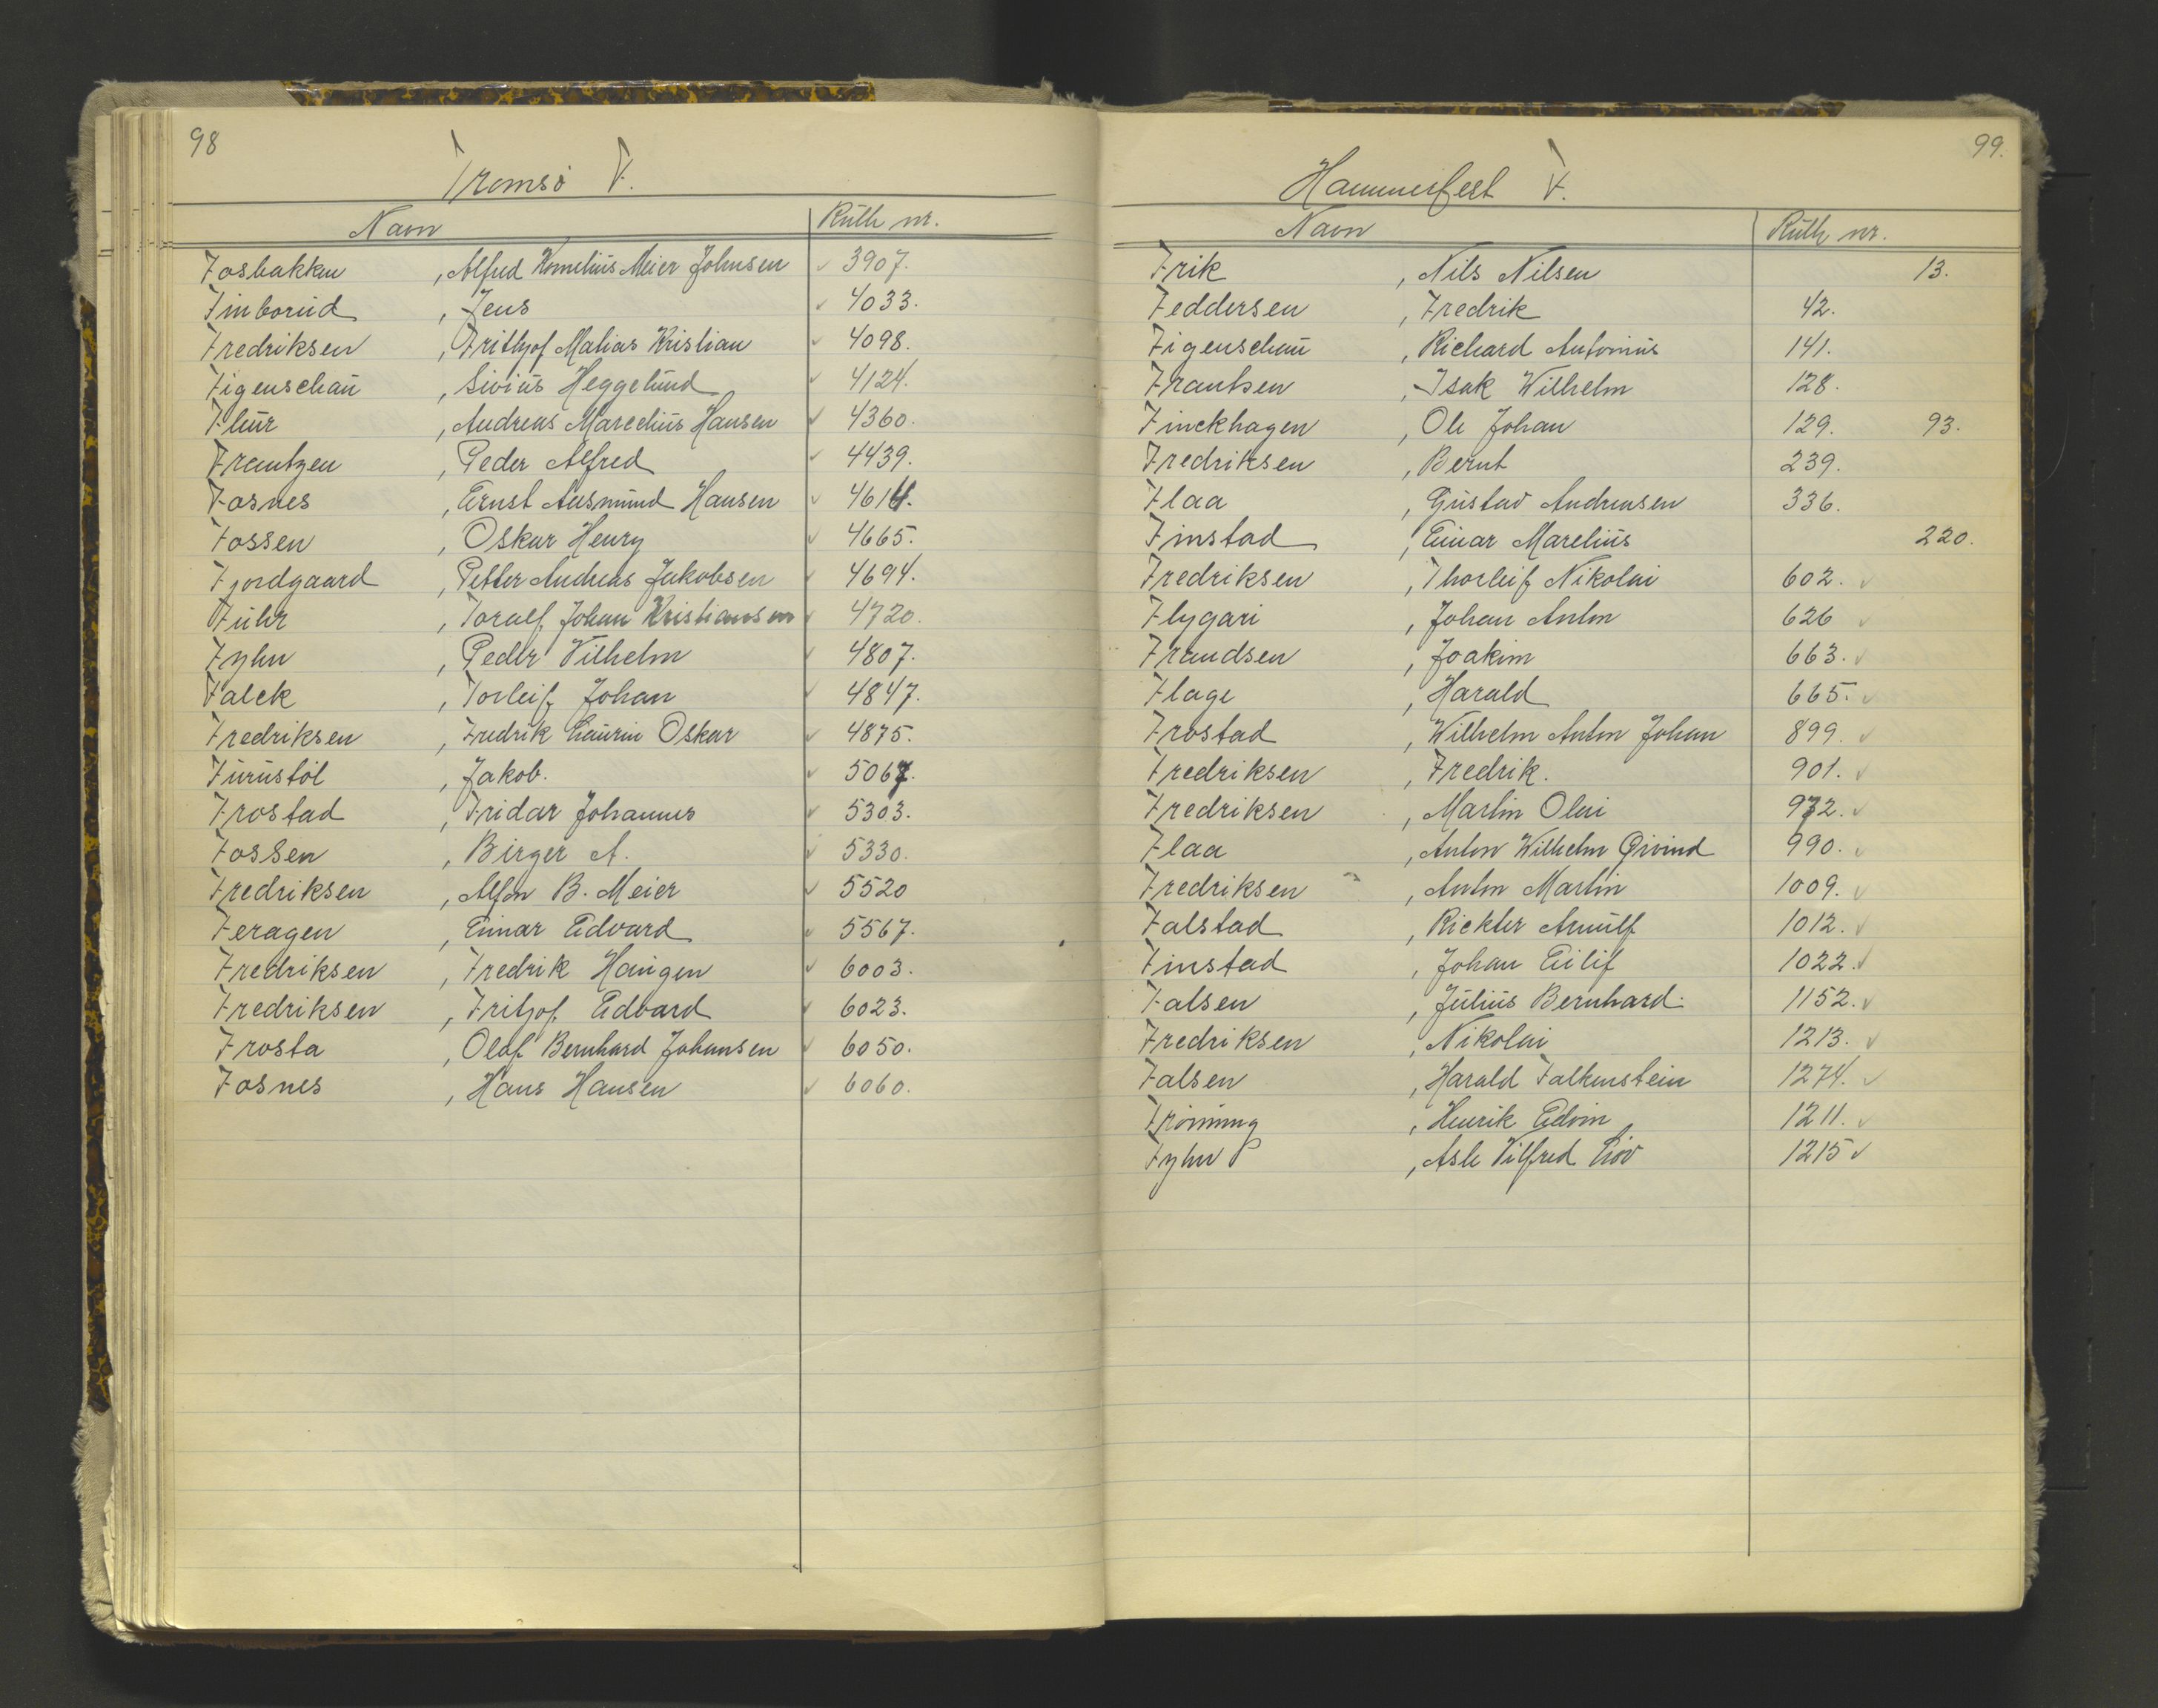 98
Tromsö F.
Navn Rulle nr.
Fosbakken , Alfred Kornelius Meier Johnsen 3907.
Finborud , Jens 4033.
Fredriksen , Frithjof Matias Kristian 4098.
Figenschau , Sivius Heggelund 4124.
Fluur , Andreas Marcelius Hansen 4360.
Frantzen , Peder Alfred 4439.
Fosnes , Ernst Aasmund Hansen 4614.
Fossen , Oskar Henry 4665.
Fjordgaard , Petter Andreas Jakobsen 4694.
Fuhr , Toralf Johan Kristiansen 4720.
Fyhn , Peder Vilhelm 4807.
Falck , Torleif Johan 4847.
Fredriksen , Fredrik Laurin Oskar 4875.
Furustöl , Jakob. 5067.
Frostad , Fridar Johannes 5303.
Fossen , Birger A. 5330.
Fredriksen , Alfon B. Meier 5520
Feragen , Einar Edvard 5567.
Fredriksen , Fredrik Haugen 6003.
Fredriksen , Fritjof Edvard 6023.
Frosta , Olaf Bernhard Johansen 6050.
Fosnes , Hans Hansen 6060.
99.
Hammerfest F.
Navn Rulle nr.
Frik , Nils Nilsen 13.
Feddersen , Fredrik 42.
Figenschau , Richard Antonius 141.
Frantsen , Isak Wilhelm 128.
Finckhagen , Ole Johan 129. 93.
Fredriksen , Bernt 239.
Flaa , Gustav Andreasen 336.
Finstad , Einar Marelius 220.
Fredriksen , Thorleif Nikolai 602.
Flygari , Johan Anton 626
Frandsen , Joakim 663.
Flage , Harald 665.
Frostad , Wilhelm Anton Johan 899.
Fredriksen , Fredrik. 901.
Fredriksen , Martin Olai 972.
Flaa , Anton Wilhelm Øivind 990.
Fredriksen , Anton Martin 1009.
Falstad , Rickter Arnulf 1012.
Finstad , Johan Eilif 1022.
Falsen , Julius Bernhard. 1152.
Fredriksen , Nikolai 1213.
Falsen , Harald Falkenstein 1274.
Fröining , Henrik Edvin 1211.
Fyhn , Asle Vilfred Liov 1215